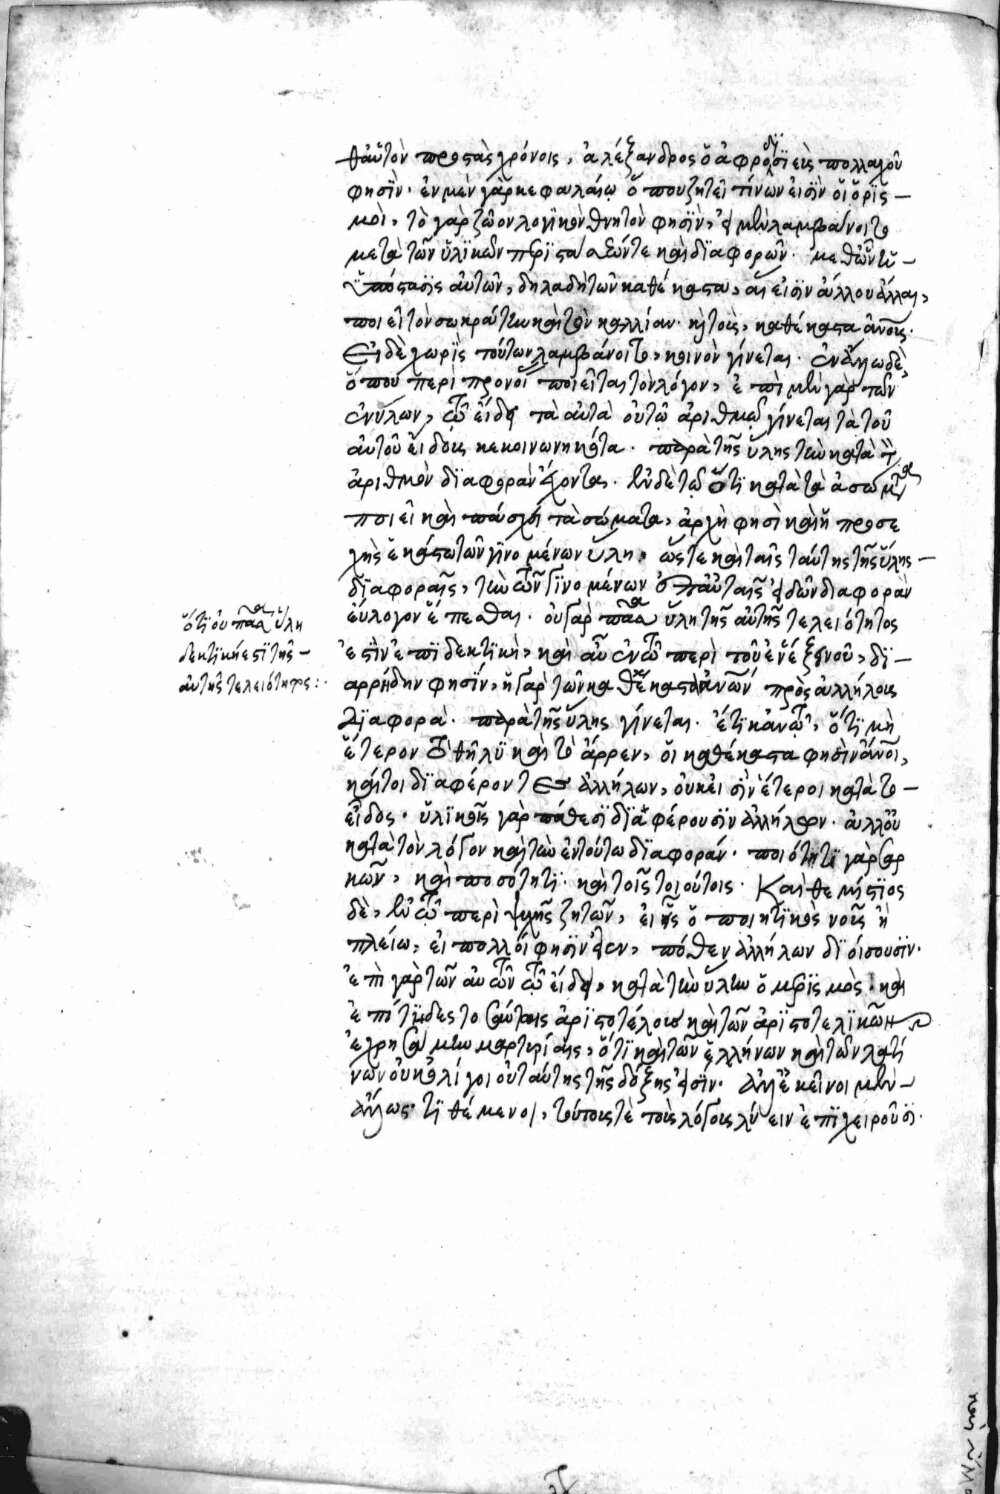 θαὐτὸν προστὰς χρόνοις, ἀλέξανδρος ὁ ἀφροδισιεὺς πολλαχοῦ
φησὶν· ἐν μὲν γὰρ κεφαλαίῳ ὅπου ζητεῖ τίνων εἰσὶν οἱ ὁρισ-
μοὶ, τὸ γὰρ ζῶον λογικὸν θνητὸν φησὶν, εἰ μὲν λαμβάνοιτο
μετὰ τῶν ὑλικῶν περιστάσεών τε καὶ διαφορῶν· μεθ' ὧν ἡ
ὑπόστασις αὐτῶν, δηλαδὴ τῶν καθέκαστα, αἵ εἰσιν ἄλλου ἄλλαι,
ποιεῖ τὸν σωκράτην καὶ τὸν καλλίαν· καὶ τοὺς, καθέκαστα ἀνους·
Εἰ δὲ χωρὶς τούτων λαμβάνοιτο, κοινὸν γίνεται· ἐν ἄλλω δὲ,
ὅπου περὶ προνοί ποιεῖται τὸν λόγον, ἐπὶ μὲν γὰρ τῶν
ἐνύλων, τῶ εἴδει τὰ αὐτὰ οὕτω ἀριθμῷ γίνεται τὰ τοῦ
αὐτοῦ εἴδους κεκοινωνηκότα· παρὰ τῆς ὕλης τὴν κατὰ τὸν
ἀριθμὸν διαφορὰν ἔχοντα· ἐν δὲ τῷ ὅτι κατὰ τὰ ἀσώματα
ποιεῖ καὶ πάσχει τὰ σώματα, ἀρχὴ φησὶ καὶ ἡ προσε
χὴς ἑκάστω τῶν γινομένων ὕλη, ὥστε καὶ ταῖς ταύτης τῆς ὕλης-
διαφοραῖς, τὴν τῶν γινομένων ἐπ' αὐταῖς εἰδῶν διαφορὰν
εὔλογον ἕπεσθαι· οὐ γὰρ πᾶσα ὕλη τῆς αὐτῆς τελειότητος
ἐστὶν ἐπιδεκτικὴ, καὶ αὖ ἐν τῶ περὶ τοῦ δι-
αρρήδην φησὶν, ἡ γὰρ τῶν καθέκαστα ἀνων πρὸς ἀλλήλους
διαφορὰ· παρὰ τῆς ὕλης γίνεται· ἔτι κἀν τῶ, ὅτι μὴ
ἕτερον τὸ θῆλυ καὶ τὸ ἄρρεν, οἱ καθέκαστα φησὶν ἄνοι,
καίτοι διαφέροντες ἀλλήλων, οὐκ εἰσὶν ἕτεροι κατὰ τὸ-
εἶδος· ὑλικοῖς γὰρ πάθεσι διαφέρουσιν ἀλλήλων· ἀλλ' οὐ
κατὰ τὸν λόγον καὶ τὴν ἐν τούτω διαφοράν· ποιότητι γὰρ σαρ
κῶν, καὶ ποσότητι· καὶ τοῖς τοιούτοις· Καὶ θεμίστιος
δὲ, ἐν τῶ περὶ ψυχῆς ζητῶν, εἰ εἷς ὁ ποιητικὸς νοῦς ἢ
πλείω, εἰ πολλοί φησὶν εἶεν, πόθεν ἀλλήλων διοίσουσιν·
ἐπὶ γὰρ τῶν αὐτῶν τῶ εἴδει, κατὰ τὴν ὕλην ὁ μερισμός· καὶ
ἐπίτηδες τοσαύταις ἀριστοτέλους καὶ τῶν ἀριστοτελικῶν
ἐχρησάμην μαρτυρίαις, ὅτι καὶ τῶν ἑλλήνων καὶ τῶν λατί
νων οὐκ ὀλίγοι οὐ ταύτης τῆς δόξης εἰσίν· ἀλλ' ἐκεῖνοι μὲν-
ἄλλως τιθέμενοι, τούτοις τὲ τοὺς λόγους λύειν ἐπιχειροῦσι·
ὅτι οὐ πᾶσα ὕλη
δεκτική ἐστι τῆς-
αὐτῆς τελειότητος:·